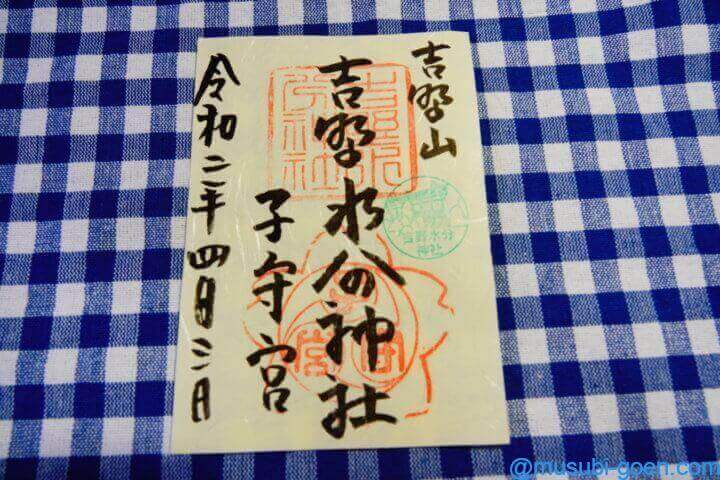 吉野山
吉野水分神社
子守宮
令和二年四月三日
吉野水分神社
吉野水分
神社
@musubi-goen.com